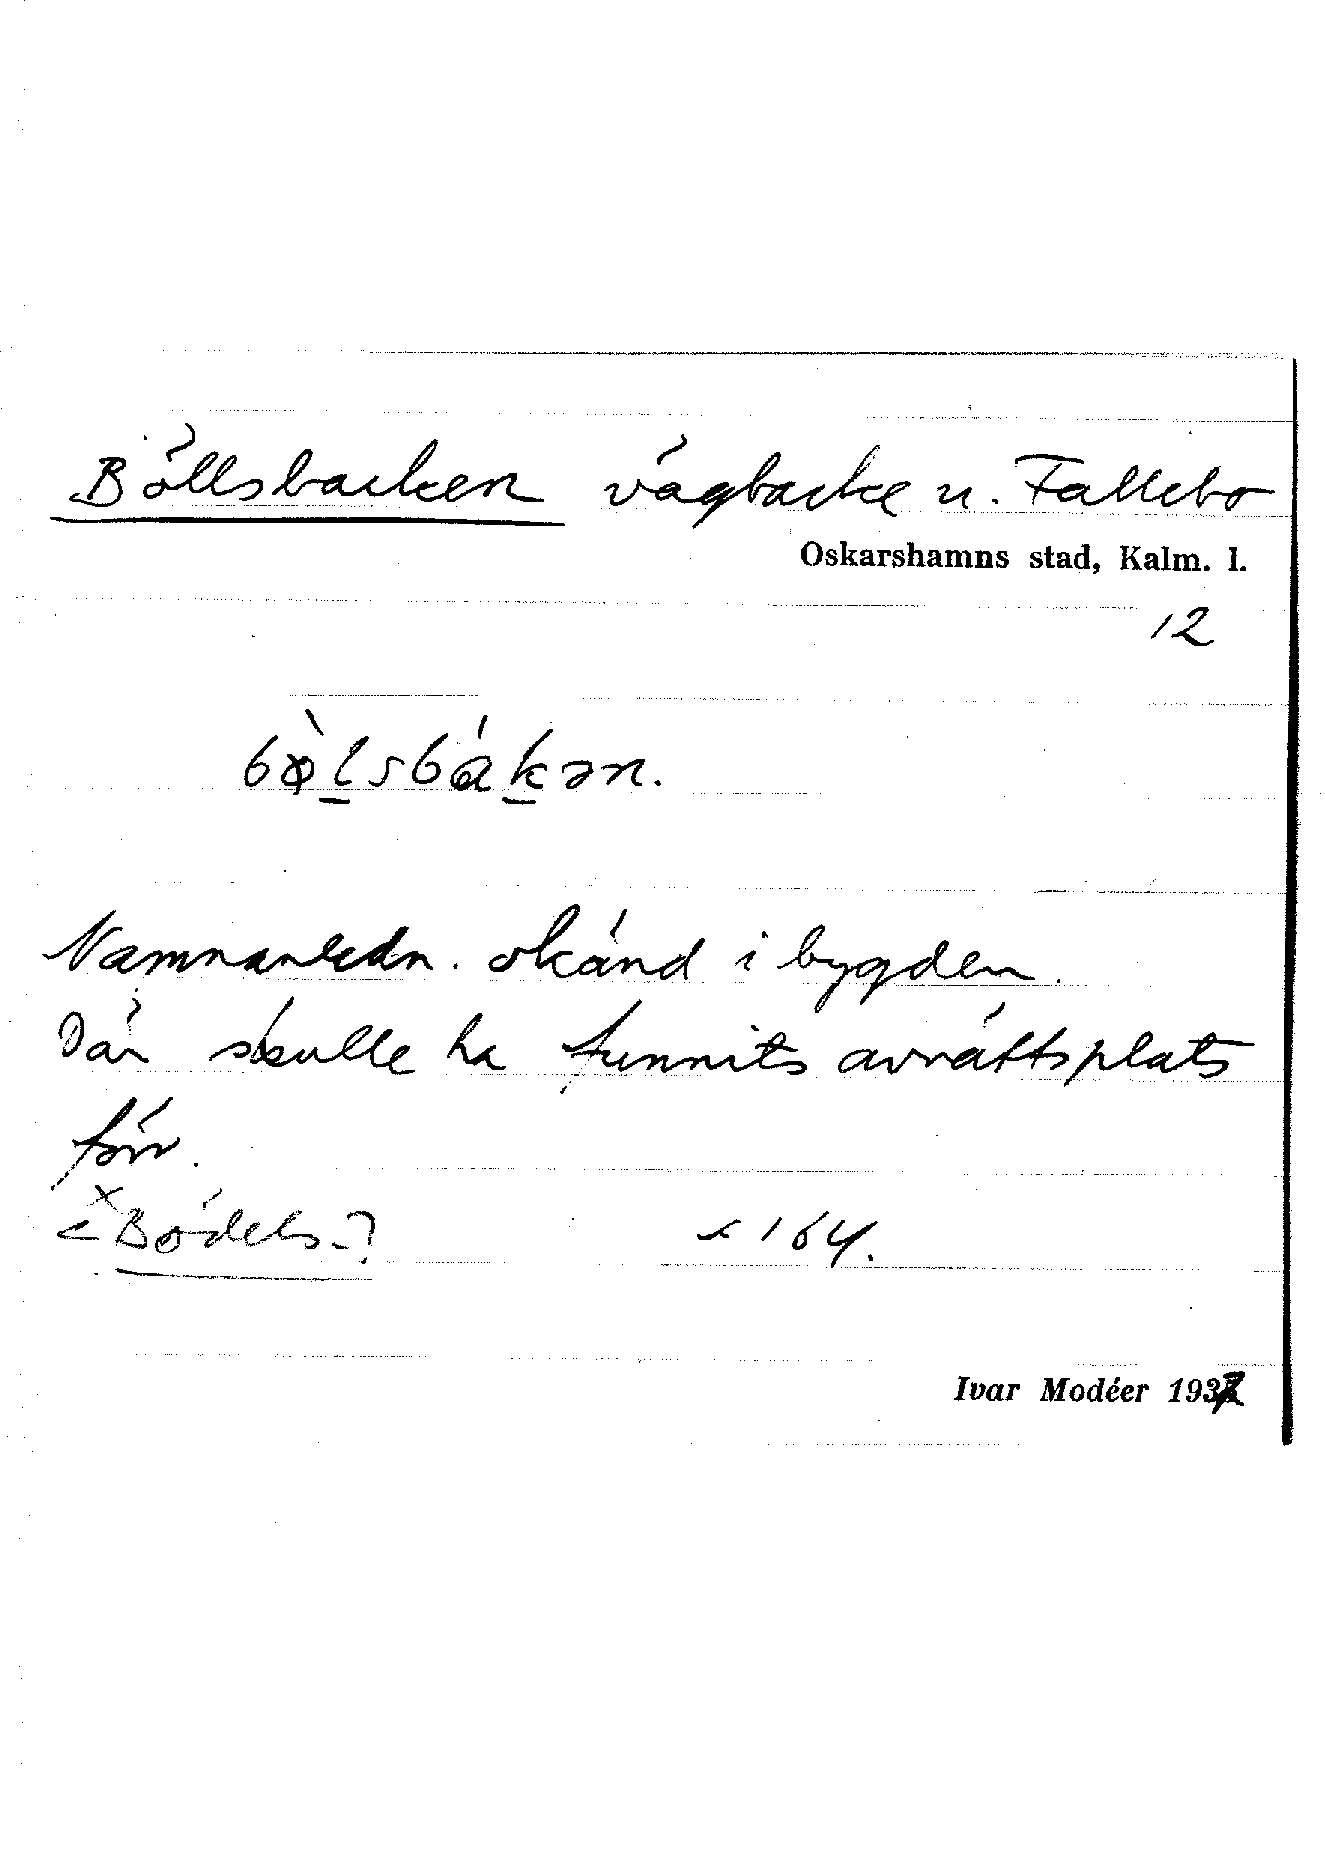 Böllsbacken vägbacke n. Fallebo
Oskarshamns stad, Kalm. l.
12
bø̀lsbákən.
Namnanledn. okänd i bygden.
Där skulle ha funnits avrättsplats
förr.
< ˣBödels-?
164.
Ivar Modéer 1937